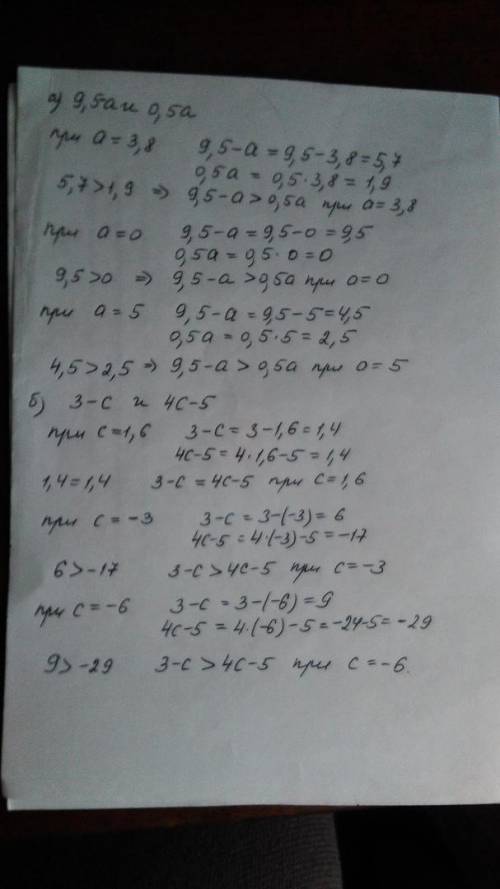 а) 9,5а и 0,5а
при а = 3,8 9,5-а = 9,5-3,8=5,7
0,5а = 0,5·3,8 = 1,9
5,7>1,9 ⇒ 9,5-а>0,5а при а=3,8
при а=0 9,5-а=9,5-0=9,5
0,5а=0,5·0=0
9,5>0 ⇒ 9,5-а>0,5а при а=0
при а=5 9,5-а=9,5-5=4,5
0,5а=0,5·5=2,5
4,5>2,5 ⇒ 9,5-а>0,5а при а=5
б) 3-с и 4с-5
при с=1,6 3-с=3-1,6=1,4
4с-5=4·1,6-5=1,4
1,4=1,4 3-с=4с-5 при с=1,6
при с=-3 3-с=3-(-3)=6
4с-5=4·(-3)-5=-17
6>-17 3-с>4с-5 при с=-3
при с=-6 3-с=3-(-6)=9
4с-5=4·(-6)-5=-24-5=-29
9>-29 3-с>4с-5 при с=-6.